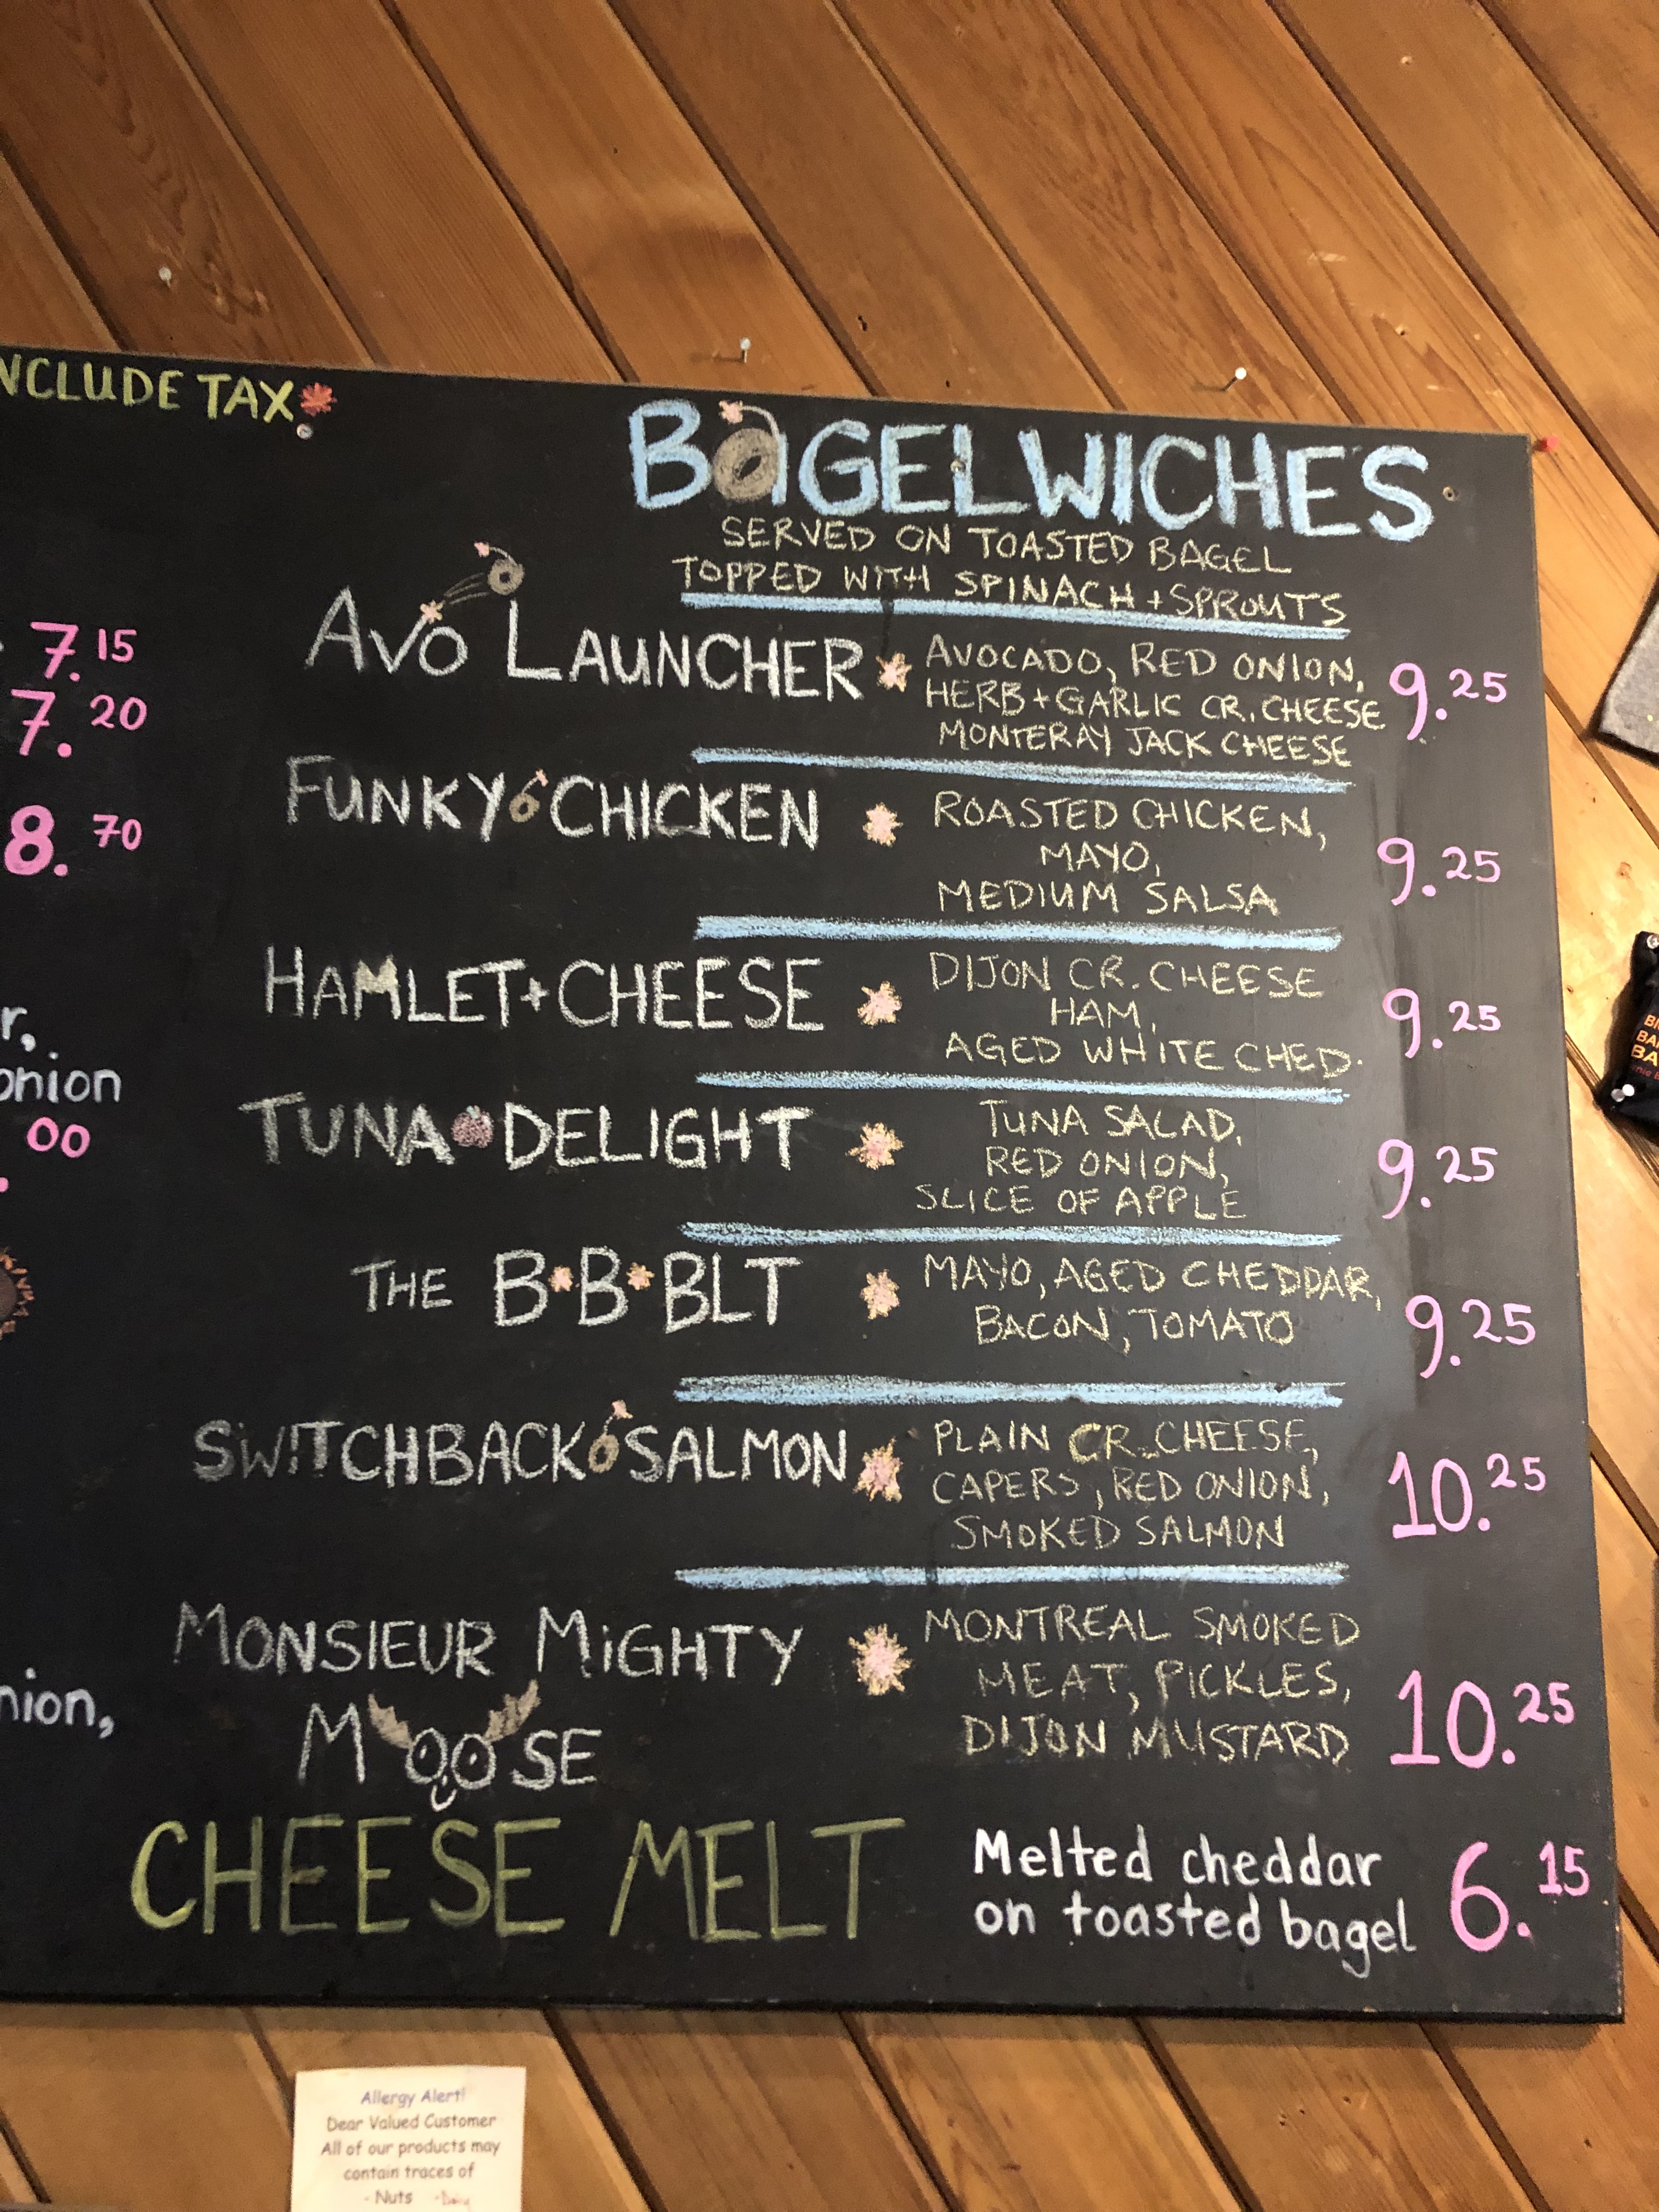 NCLUDE TAX
7.15
7.20
8.70
r,
onion
00
nion,
BAGELWICHES
SERVED ON TOASTED BAGEL
TOPPED WITH SPINACH + SPROUTS
AVO LAUNCHER
AVOCADO, RED ONION,
HERB + GARLIC CR. CHEESE
MONTERAY JACK CHEESE
9.25
FUNKY CHICKEN
ROASTED CHICKEN,
MAYO,
MEDIUM SALSA
9.25
HAMLET + CHEESE
DIJON CR. CHEESE
HAM,
AGED WHITE CHED.
9.25
TUNA DELIGHT
TUNA SALAD,
RED ONION,
SLICE OF APPLE
9.25
THE B·B·BLT
MAYO, AGED CHEDDAR,
BACON, TOMATO
9.25
SWITCHBACK SALMON
PLAIN CR. CHEESE,
CAPERS, RED ONION,
SMOKED SALMON
10.25
MONSIEUR MiGHTY
MOOSE
MONTREAL SMOKED
MEAT, PICKLES,
DIJON MUSTARD
10.25
CHEESE MELT
Melted cheddar
on toasted bagel
6.15
Allergy Alert!
Dear Valued Customer
All of our products may
contain traces of
- Nuts